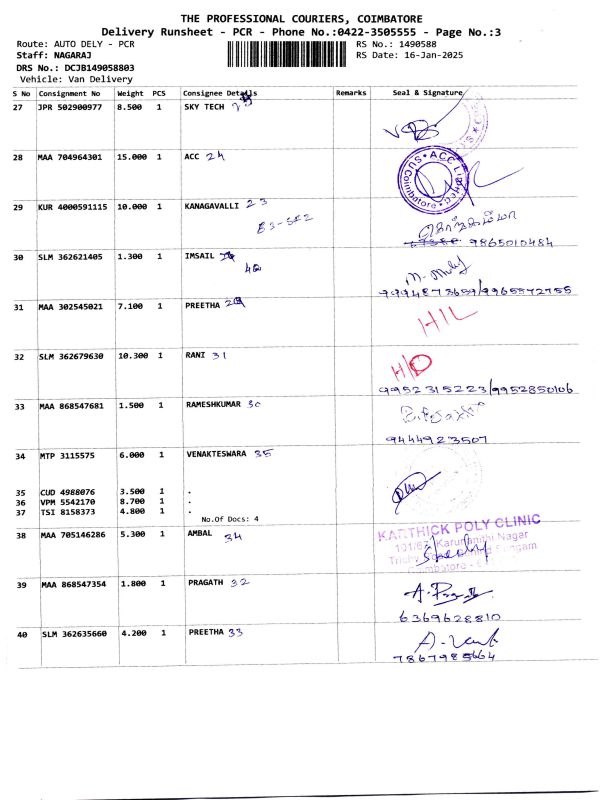 THE PROFESSIONAL COURIERS, COIMBATORE
Delivery Runsheet - PCR - Phone No.:0422-3505555 - Page No.:3
Route: AUTO DELY - PCR RS No.: 1490588
Staff: NAGARAJ RS Date: 16-Jan-2025
DRS No.: DCJB149058803
Vehicle: Van Delivery
S No Consignment No Weight PCS Consignee Details Remarks Seal & Signature
27 JPR 502900977 8.500 1 SKY TECH
28 MAA 704964301 15.000 1 ACC 24
ACC Coimbatore
29 KUR 4000591115 10.000 1 KANAGAVALLI 23
9865010484
30 SLM 362621405 1.300 1 IMSAIL
40
9994873659/9965572755
31 MAA 302545021 7.100 1 PREETHA
H/L
32 SLM 362679630 10.300 1 RANI 31
H/O
9952315223/9952850106
33 MAA 868547681 1.500 1 RAMESHKUMAR 30
9444923507
34 MTP 3115575 6.000 1 VENAKTESWARA 35
35 CUD 4988076 3.500 1 .
36 VPM 5542170 8.700 1 .
37 TSI 8158373 4.800 1 .
No.Of Docs: 4
38 MAA 705146286 5.300 1 AMBAL 34
KARTHICK POLY CLINIC
Karunanithi Nagar
39 MAA 868547354 1.800 1 PRAGATH 32
6369628810
40 SLM 362635660 4.200 1 PREETHA 33
7867985664